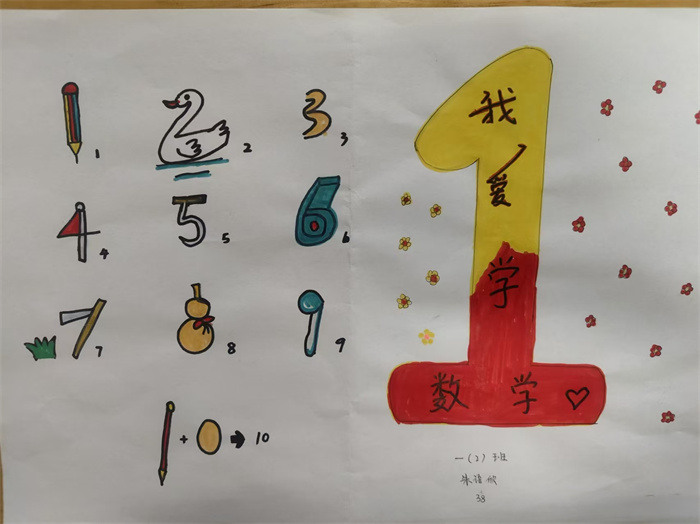 1
2
3
4
5
6
7
8
9
+ → 10
我
爱
学
数 学 ♡
一(2)班
38